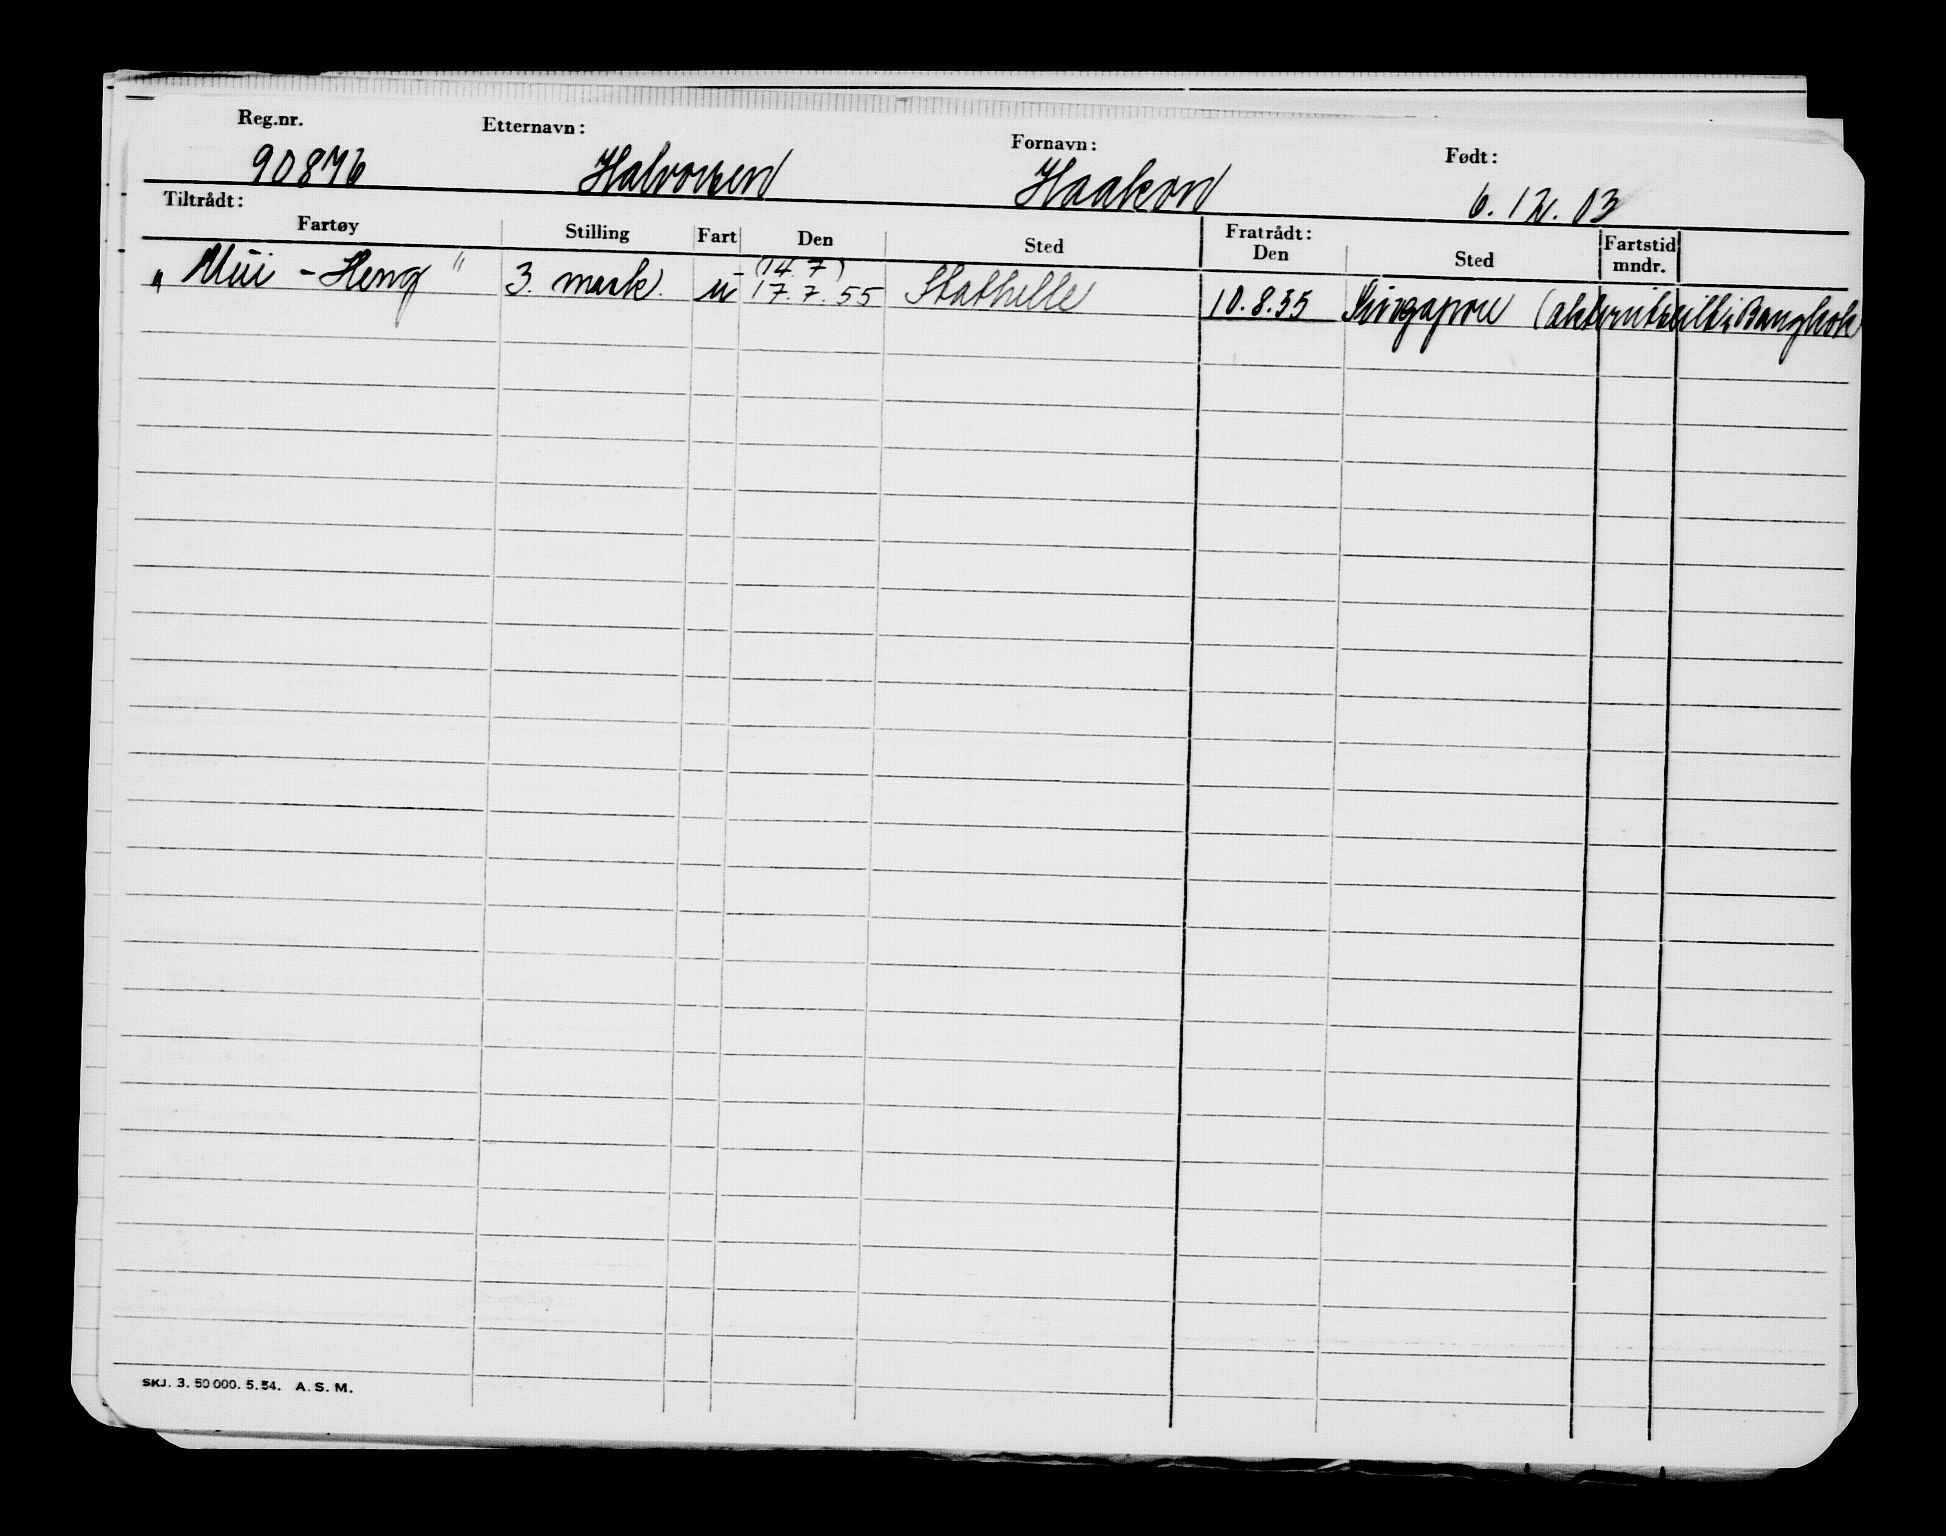 Reg.nr. Etternavn: Fornavn: Født:
90876 Halvorsen Haakon 6.12.03
Tiltrådt: Fratrådt:
Fartøy Stilling Fart Den Sted Den Sted Fartstid mndr.
(14.7)
„Mui-Heng" 3. mask. u 17.7.55 Stathelle 10.8.55 Singapore (akterutseilt i Bangkok
SKJ. 3. 50 000. 5.54. A. S. M.